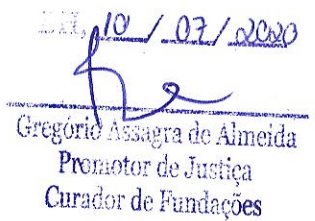 BH, 10 / 07 / 2020
Gregório Assagra de Almeida
Promotor de Justiça
Curador de Fundações